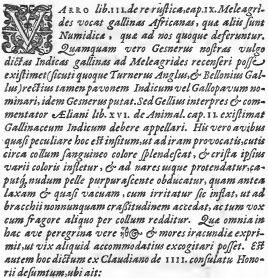 VARRO lib. III. de re rustica, cap. IX. Meleagri-
des vocat gallinas Africanas, quæ aliis sunt
Numidicæ, quæ ad nos quoque deferuntur.
Quamquam vero Gesnerus nostras vulgo
dictas Indicas gallinas ad Meleagrides recenseri posse
existimet (sicuti quoque Turnerus Anglus, & Bellonius Gal-
lus) rectius tamen pavonem Indicum vel Gallopavum no-
minari, idem Gesnerus putat. Sed Gellius interpres & com-
mentator Æliani lib. XVI. de Animal. cap. II. existimat
Gallinaceum Indicum debere appellari. His vero avibus
quasi peculiare hoc est insitum, ut ad iram provocatis, cutis
circa collum sanguineo colore splendescat, & crista ipsius
varii coloris infletur, & ad nares usque protendatur, ca-
putq; nudum pelle purpurascente obducatur, quam antea
laxam & quasi vacuam, cum irritatur sic inflat, ut ad
brachii nonnunquam crassitudinem accedat, actum vox
cum fragore aliquo per collum redditur. Quæ omnia in
hac ave peregrina vere & mores iracundia expri-
mit, ut vix aliquid accommodatius excogitari posset. Est
autem hoc dictum ex Claudiano de IIII. consulatu Hono-
rii desumtum, ubi ait: